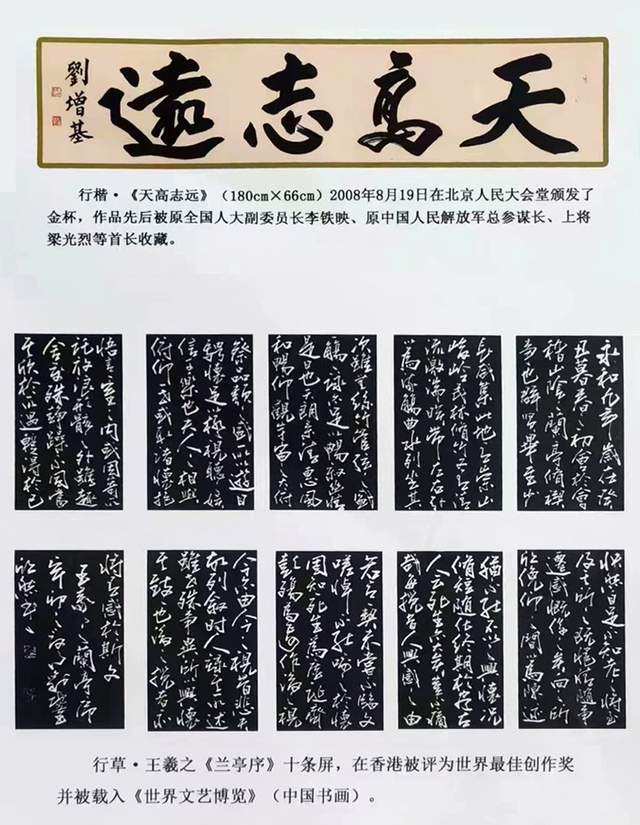 天高志遠
劉增基
行楷·《天高志远》（180cm×66cm）2008年8月19日在北京人民大会堂颁发了
金杯，作品先后被原全国人大副委员长李铁映、原中国人民解放军总参谋长、上将
梁光烈等首长收藏。
永和九年歲在癸
丑暮春之初會於會
稽山陰之蘭亭脩禊
事也群賢畢至少
長咸集此地有崇山
峻嶺茂林脩竹又有清
流激湍暎帶左右引
以為流觴曲水列坐其
次雖無絲竹管弦之盛一
觴一詠亦足以暢敘幽情
是日也天朗氣清惠風
和暢仰觀宇宙之大俯
察品類之盛所以遊目
騁懷足以極視聽之娛
信可樂也夫人之相與
俯仰一世或取諸懷抱
悟言一室之內或因寄所
託放浪形骸之外雖趣
舍萬殊靜躁不同當其
欣於所遇暫得於己
快然自足不知老之將至
及其所之既惓情隨事
遷感慨係之矣向之所
欣俛仰之間為陳迹
猶不能不以之興懷況
脩短隨化終期於盡古
人云死生亦大矣豈不痛
哉每攬昔人興感之由
若合一契未嘗不臨文
嗟悼不能喻之於懷
固知死生為虛誕齊
彭殤為妄作後之視
今亦由今之視昔悲夫
故列敘時人錄其所述
雖世殊事異所以興懷
其致一也後之攬者亦
將有感於斯文
王羲之蘭亭序
辛卯之
欣然書
行草·王羲之《兰亭序》十条屏，在香港被评为世界最佳创作奖
并被载入《世界文艺博览》（中国书画）。